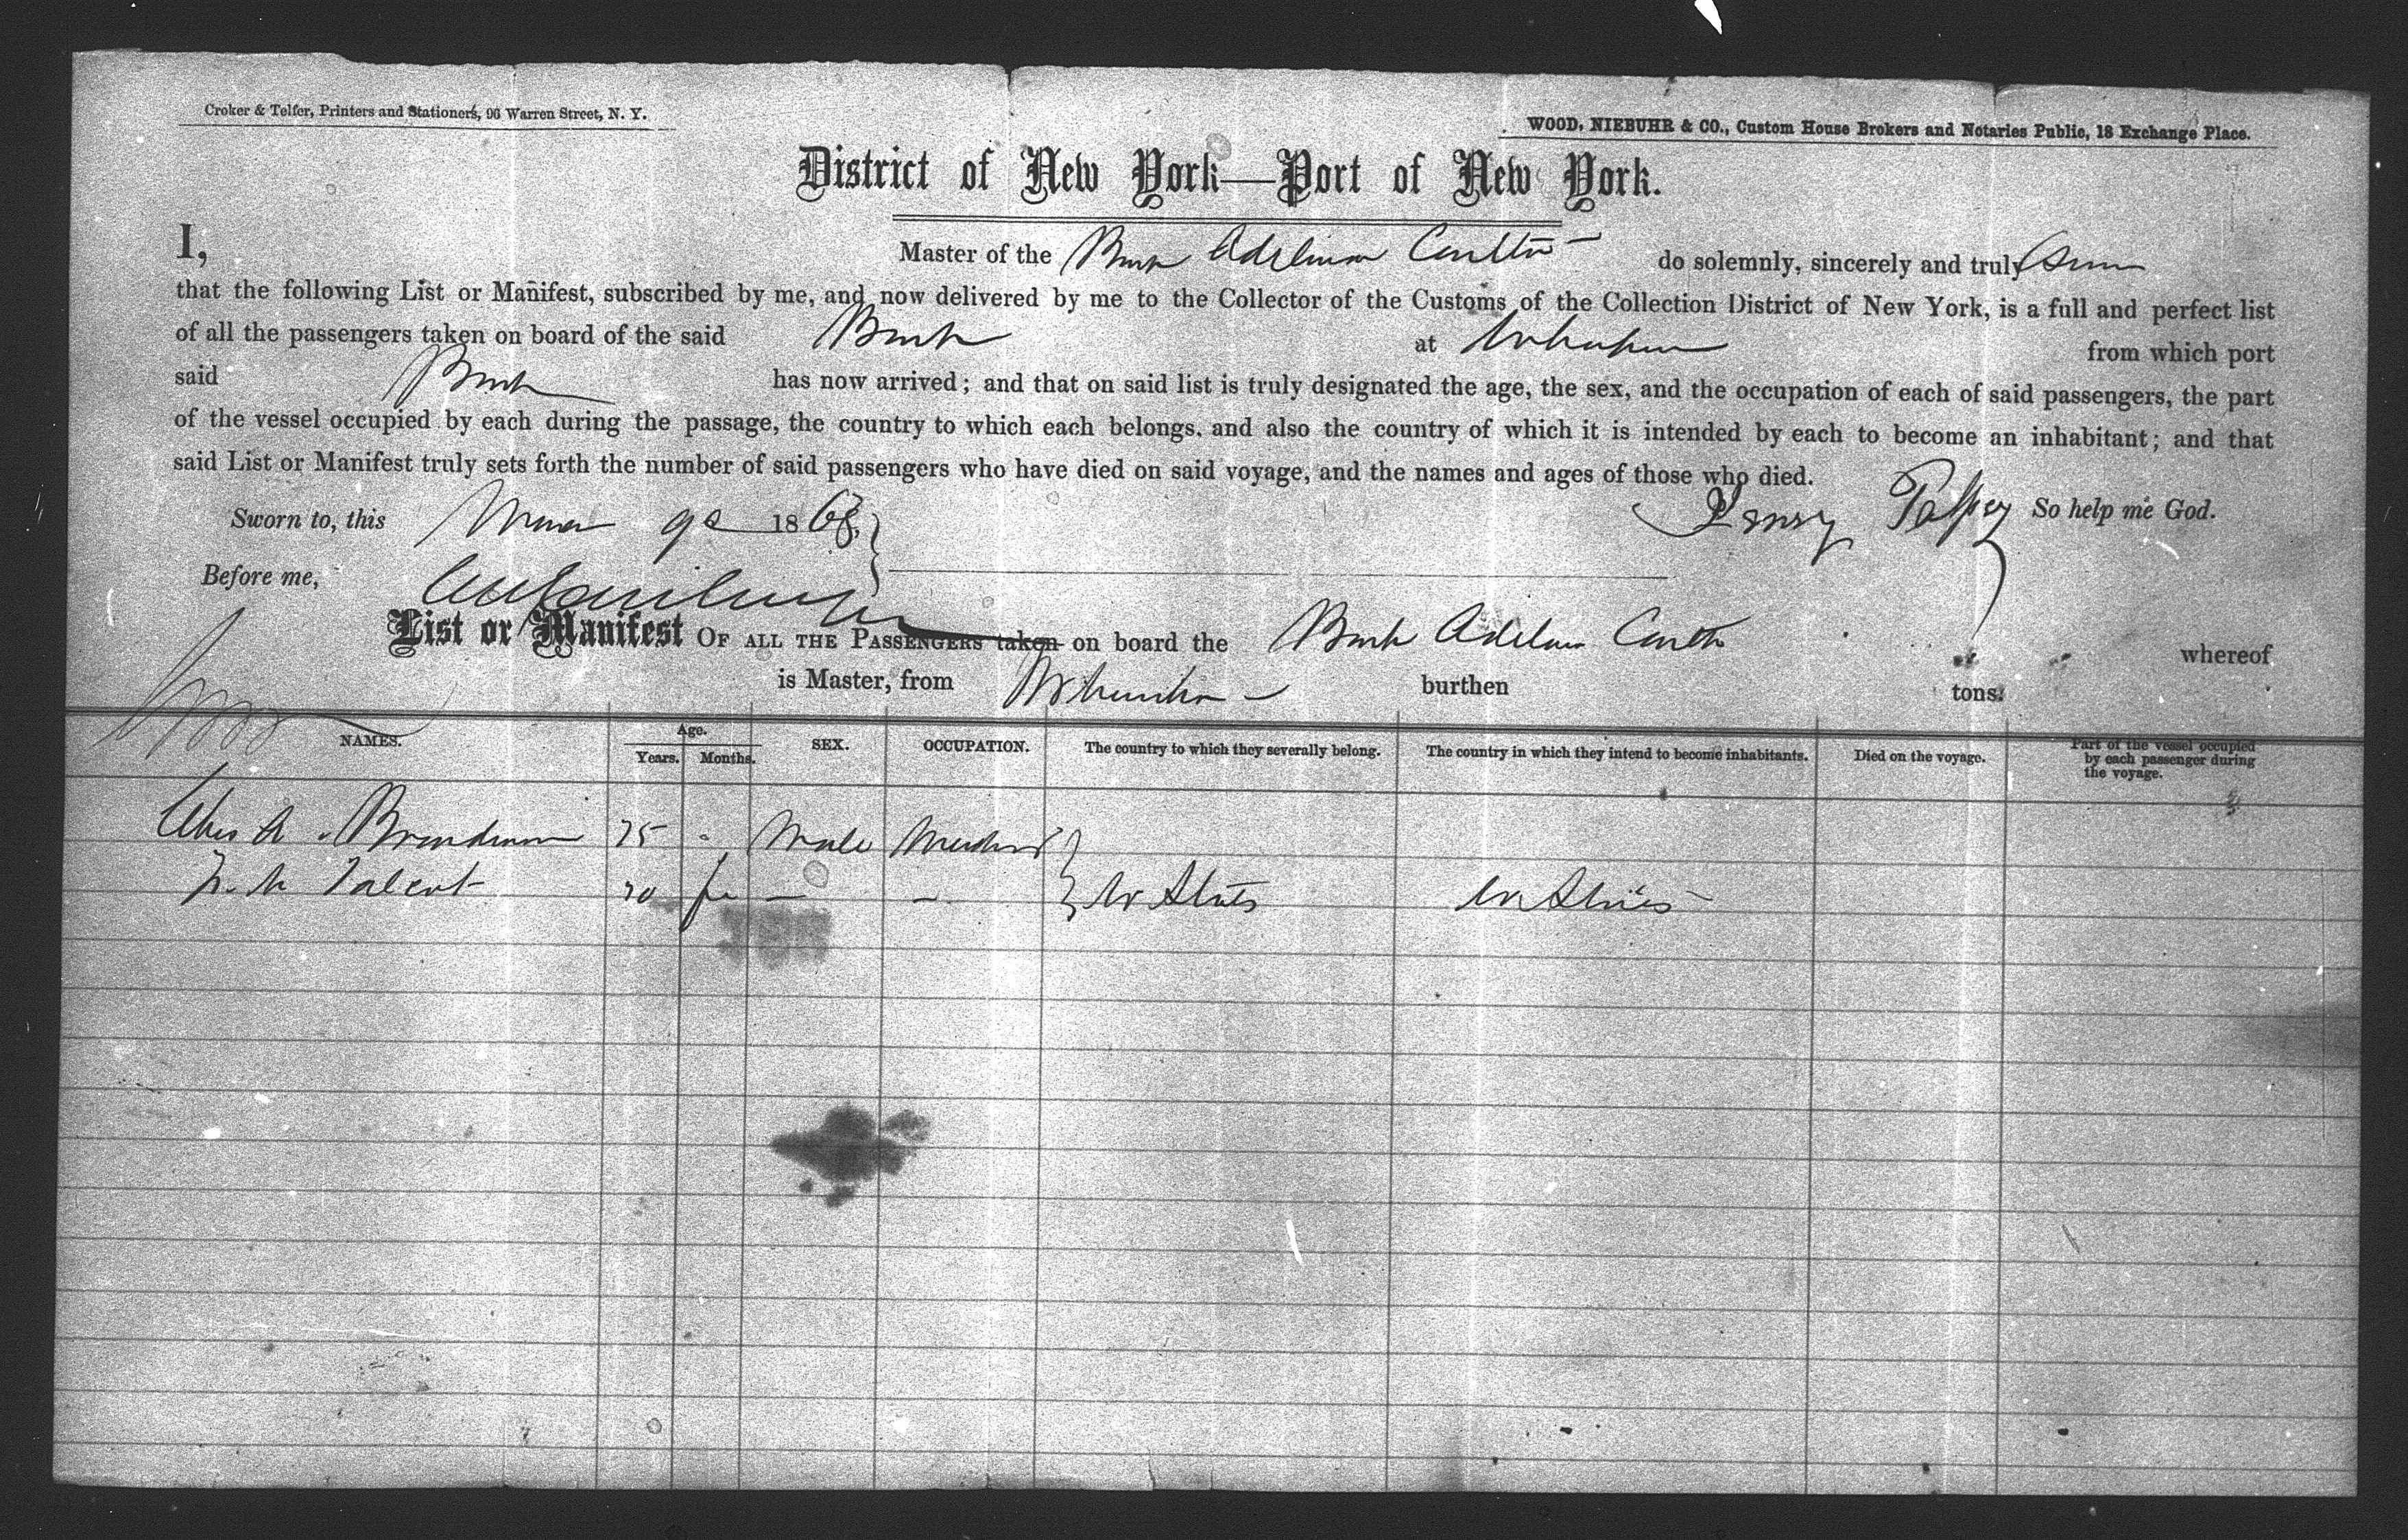 Croker & Telfer, Printers and Stationers, 96 Warren Street, N. Y.
WOOD, NIEBUHR & CO., Custom House Brokers and Notaries Public, 18 Exchange Place.
District of New York—Port of New York.
I, Master of the Bark Adelina Carlton do solemnly, sincerely and truly
that the following List or Manifest, subscribed by me, and now delivered by me to the Collector of the Customs of the Collection District of New York, is a full and perfect list
of all the passengers taken on board of the said Bark at from which port
said Bark has now arrived; and that on said list is truly designated the age, the sex, and the occupation of each of said passengers, the part
of the vessel occupied by each during the passage, the country to which each belongs, and also the country of which it is intended by each to become an inhabitant; and that
said List or Manifest truly sets forth the number of said passengers who have died on said voyage, and the names and ages of those who died.
Sworn to, this 9 1868 Henry So help me God.
Before me,
List or Manifest OF ALL THE PASSENGERS taken on board the Bark Adelina Carlton whereof
is Master, from burthen tons.
NAMES. Age. Years. Months. SEX. OCCUPATION. The country to which they severally belong. The country in which they intend to become inhabitants. Died on the voyage. Part of the vessel occupied by each passenger during the voyage.
Male
Talcot U States U States